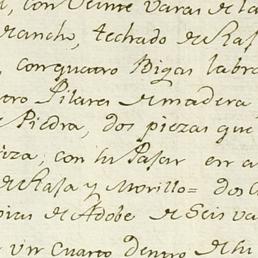 con Veinte varas de la
Rancho, techado de Raf
con quatro Bigas labra
tro Pilares de madera
Piedra, dos piezas que
con su Pajar en a
de Rafa y Morillo= dos C
de Adobe de Seis va
Vn Cuarto dentro de su